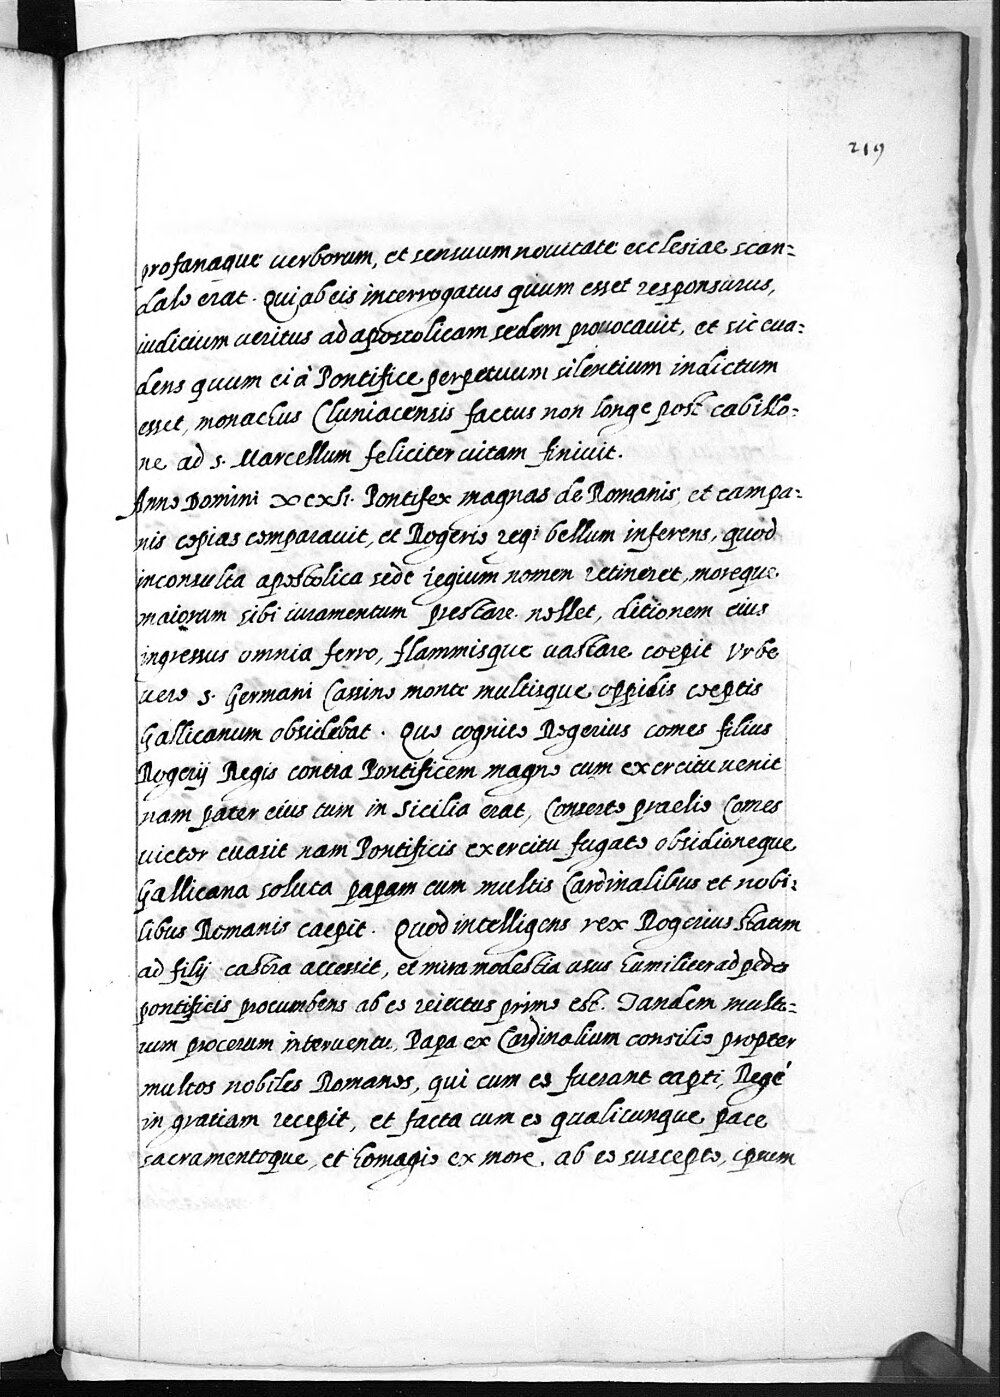 219
profanaque uerborum, et sensuum nouitate ecclesiae scan=
dalo erat. Qui ab eis interrogatus quum esset responsurus,
iudicium ueritus ad apostolicam sedem prouocauit, et sic eua=
dens quum ei à Pontifice perpetuum silentium indictum
esset, monachus Cluniacensis factus non longe post cabillo=
ne ad s. Marcellum feliciter uitam finiuit.
Anno Domini Pontifex magnas de Romanis, et campa=
nis copias comparauit, et Rogerio regi bellum inferens, quod
inconsulta apostolica sede regium nomen retineret, moreque
maiorum sibi iuramentum prestare nollet, ditionem eius
ingressus omnia ferro, flammisque uastare coepit Vrbe
uero s. Germani Cassino monte multisque oppidis coeptis
Gallicanum obsidebat. Quo cognito Rogerius comes filius
Rogerij Regis contra Pontificem magno cum exercitu uenit
nam pater eius tum in Sicilia erat, Conserto praelio Comes
uictor euasit nam Pontificis exercitu fugato obsidioneque
Gallicana soluta papam cum multis Cardinalibus et nobi=
libus Romanis caepit. Quod intelligens rex Rogerius statim
ad filij castra accessit, et mira modestia usus humiliter ad pedes
pontificis procumbens ab eo reiectus primo est. Tandem multo=
rum procerum interuentu, Papa ex Cardinalium consilio propter
multos nobiles Romanos, qui cum eo fuerant capti, Regé
in gratiam recepit, et facta cum eo qualicunque pace
sacramentoque, et homagio ex more ab eo suscepto, ipsum